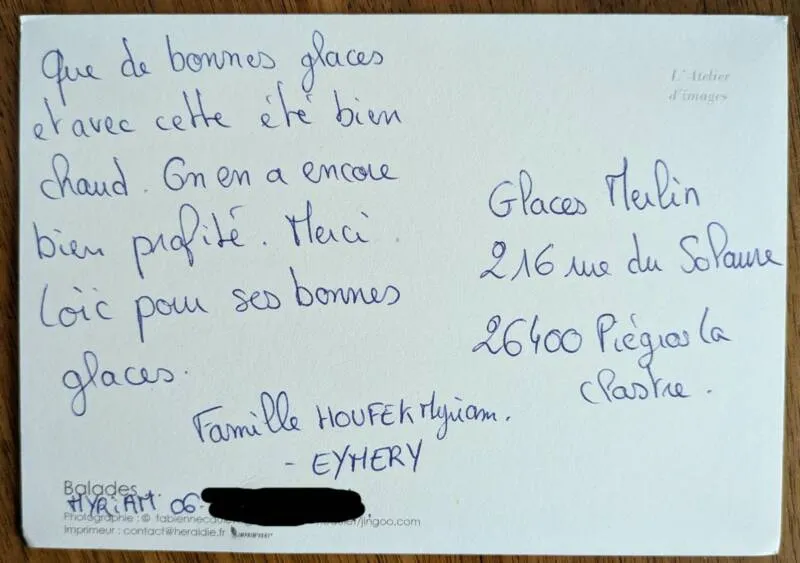 Que de bonnes glaces
et avec cette été bien
chaud. On en a encore
bien profité. Merci
Loïc pour ses bonnes
glaces.
Famille HOUFEK Myriam.
- EYMERY
L'Atelier
d'images
Glaces Merlin
216 rue du Solaure
26400 Piégros la
Clastre.
Balades
MYRiAM. 06
Photographie : © fabiennecau jingoo.com
Imprimeur : contact@heraldie.fr